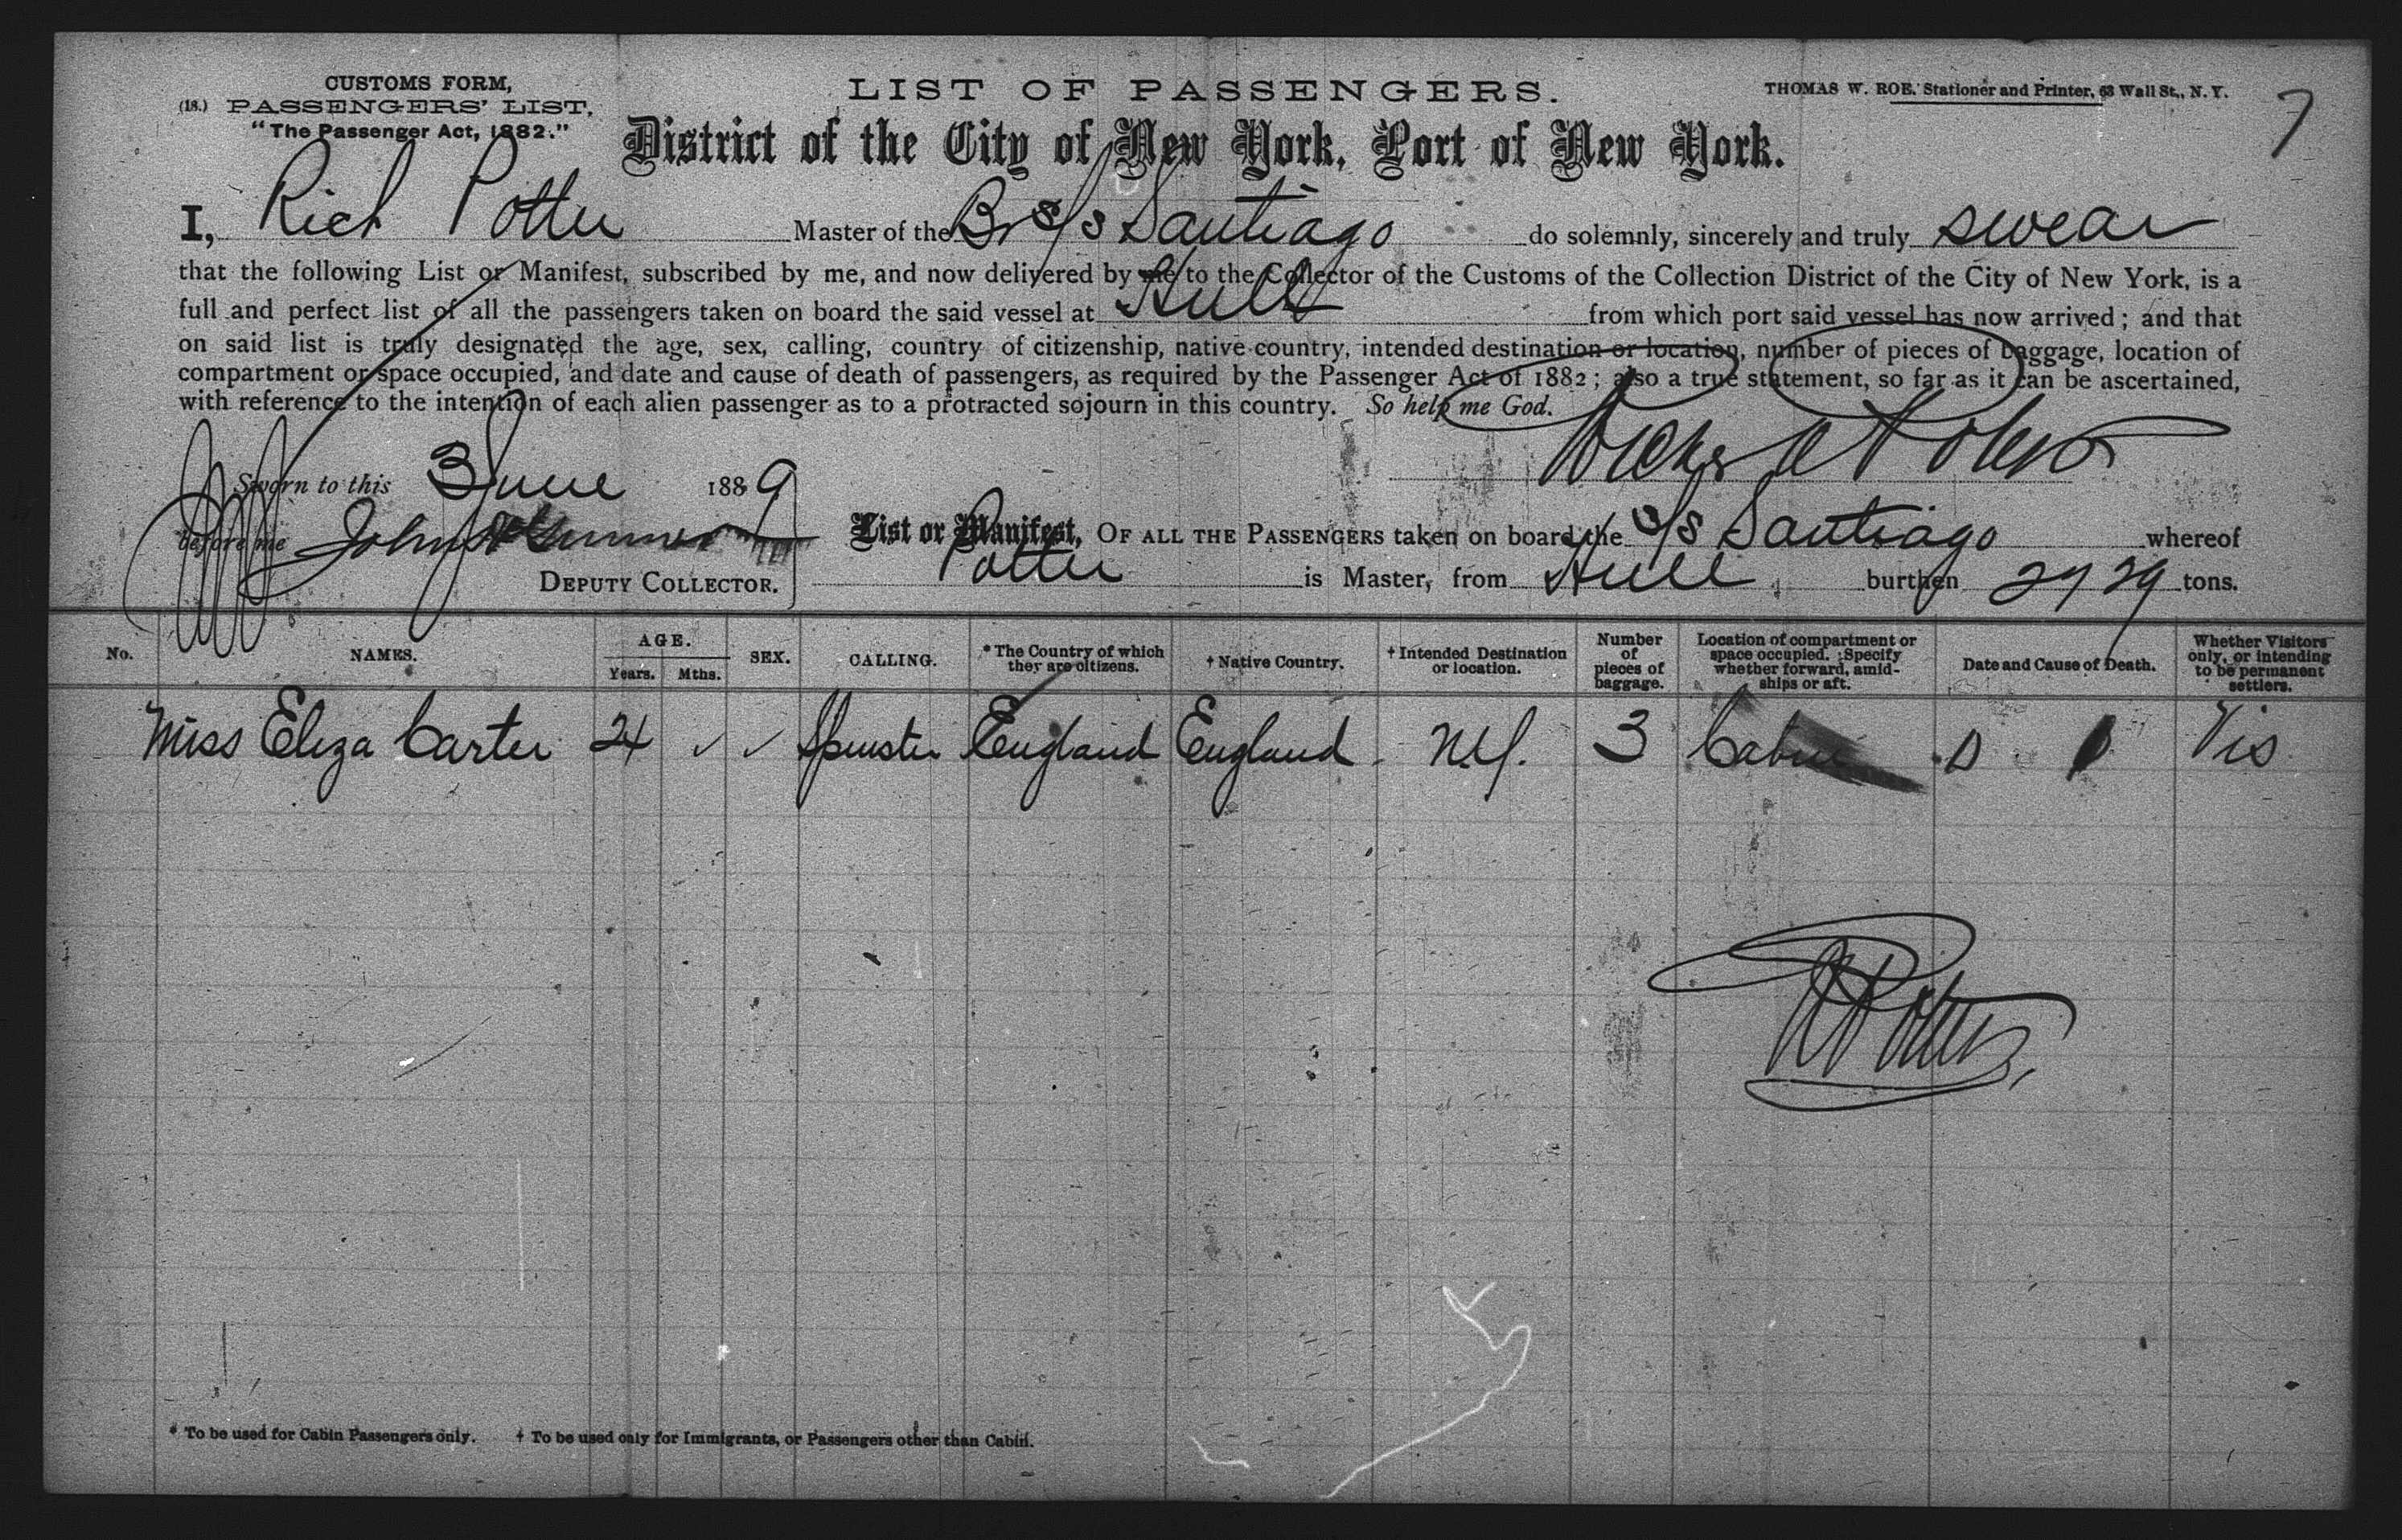 CUSTOMS FORM,
(18.) PASSENGERS' LIST,
"The Passenger Act, 1882."
LIST OF PASSENGERS.
THOMAS W. ROE. Stationer and Printer, 53 Wall St., N. Y.
7
District of the City of New York, Port of New York.
I, Rich Potter Master of the Br s/s Santiago do solemnly, sincerely and truly swear
that the following List or Manifest, subscribed by me, and now delivered by me to the Collector of the Customs of the Collection District of the City of New York, is a
full and perfect list of all the passengers taken on board the said vessel at Hull from which port said vessel has now arrived; and that
on said list is truly designated the age, sex, calling, country of citizenship, native country, intended destination or location, number of pieces of baggage, location of
compartment or space occupied, and date and cause of death of passengers, as required by the Passenger Act of 1882; also a true statement, so far as it can be ascertained,
with reference to the intention of each alien passenger as to a protracted sojourn in this country. So help me God.
Sworn to this 3 June 1889
before me John
DEPUTY COLLECTOR.
List or Manifest, OF ALL THE PASSENGERS taken on board the s/s Santiago whereof
Potter is Master, from Hull burthen tons.
No. NAMES. AGE. Years. Mths. SEX. CALLING. * The Country of which they are citizens. † Native Country. † Intended Destination or location. Number of pieces of baggage. Location of compartment or space occupied. Specify whether forward, amidships or aft. Date and Cause of Death. Whether Visitors only, or intending to be permanent settlers.
Miss Eliza Carter 24 ✓ ✓ Spinster England England N.Y. 3 Cabin Vis
R Potter
* To be used for Cabin Passengers only. † To be used only for Immigrants, or Passengers other than Cabin.